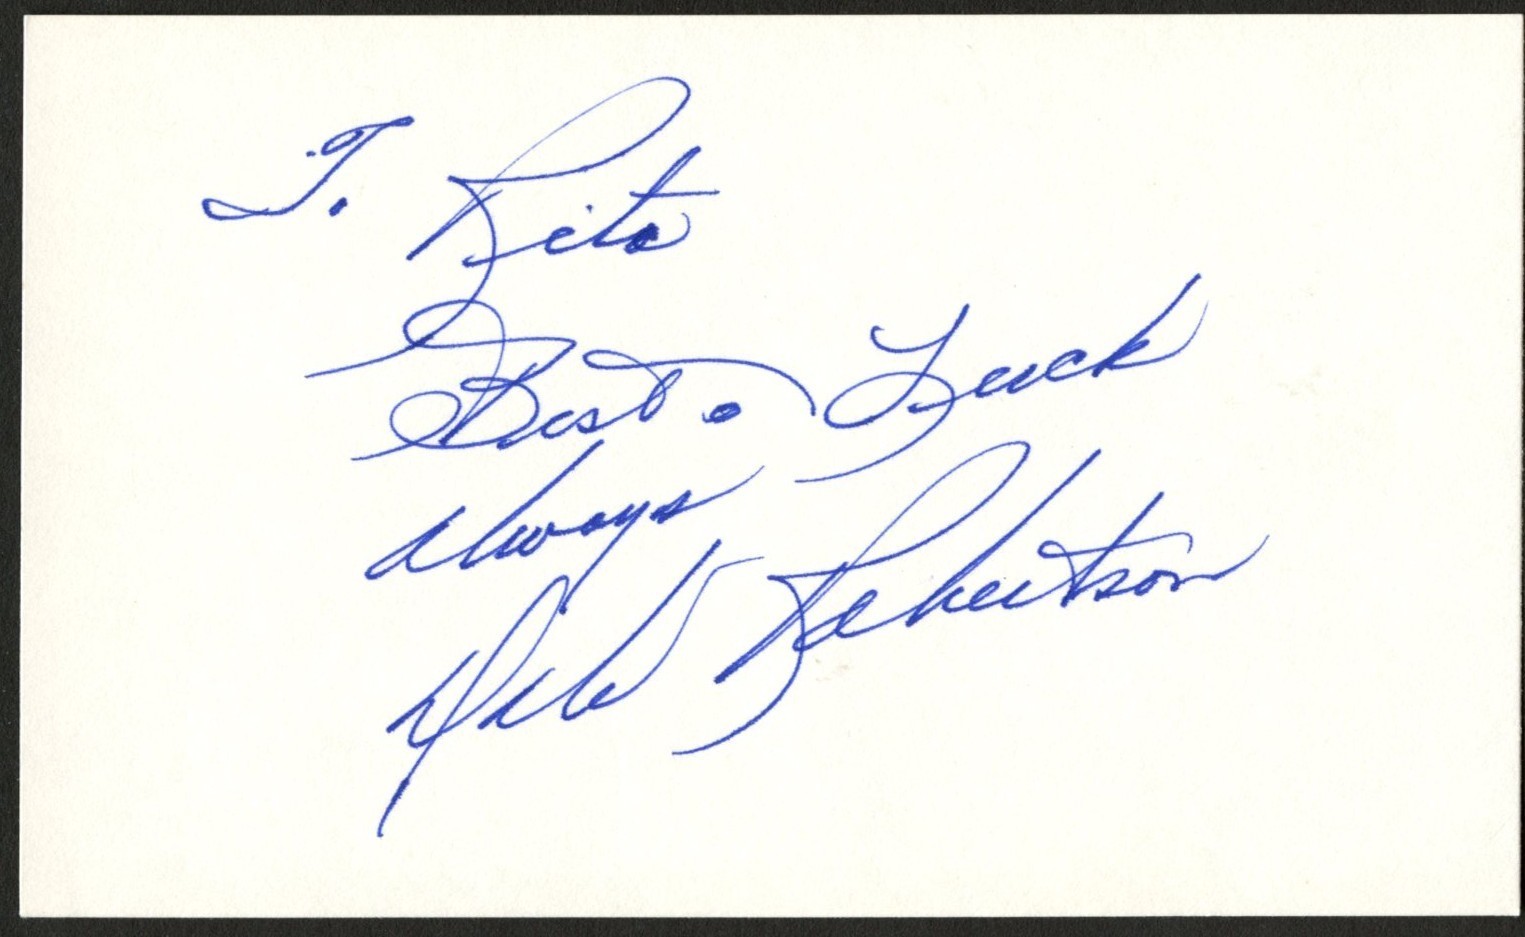 To Rita
Best o Luck
always
Dale Robertson